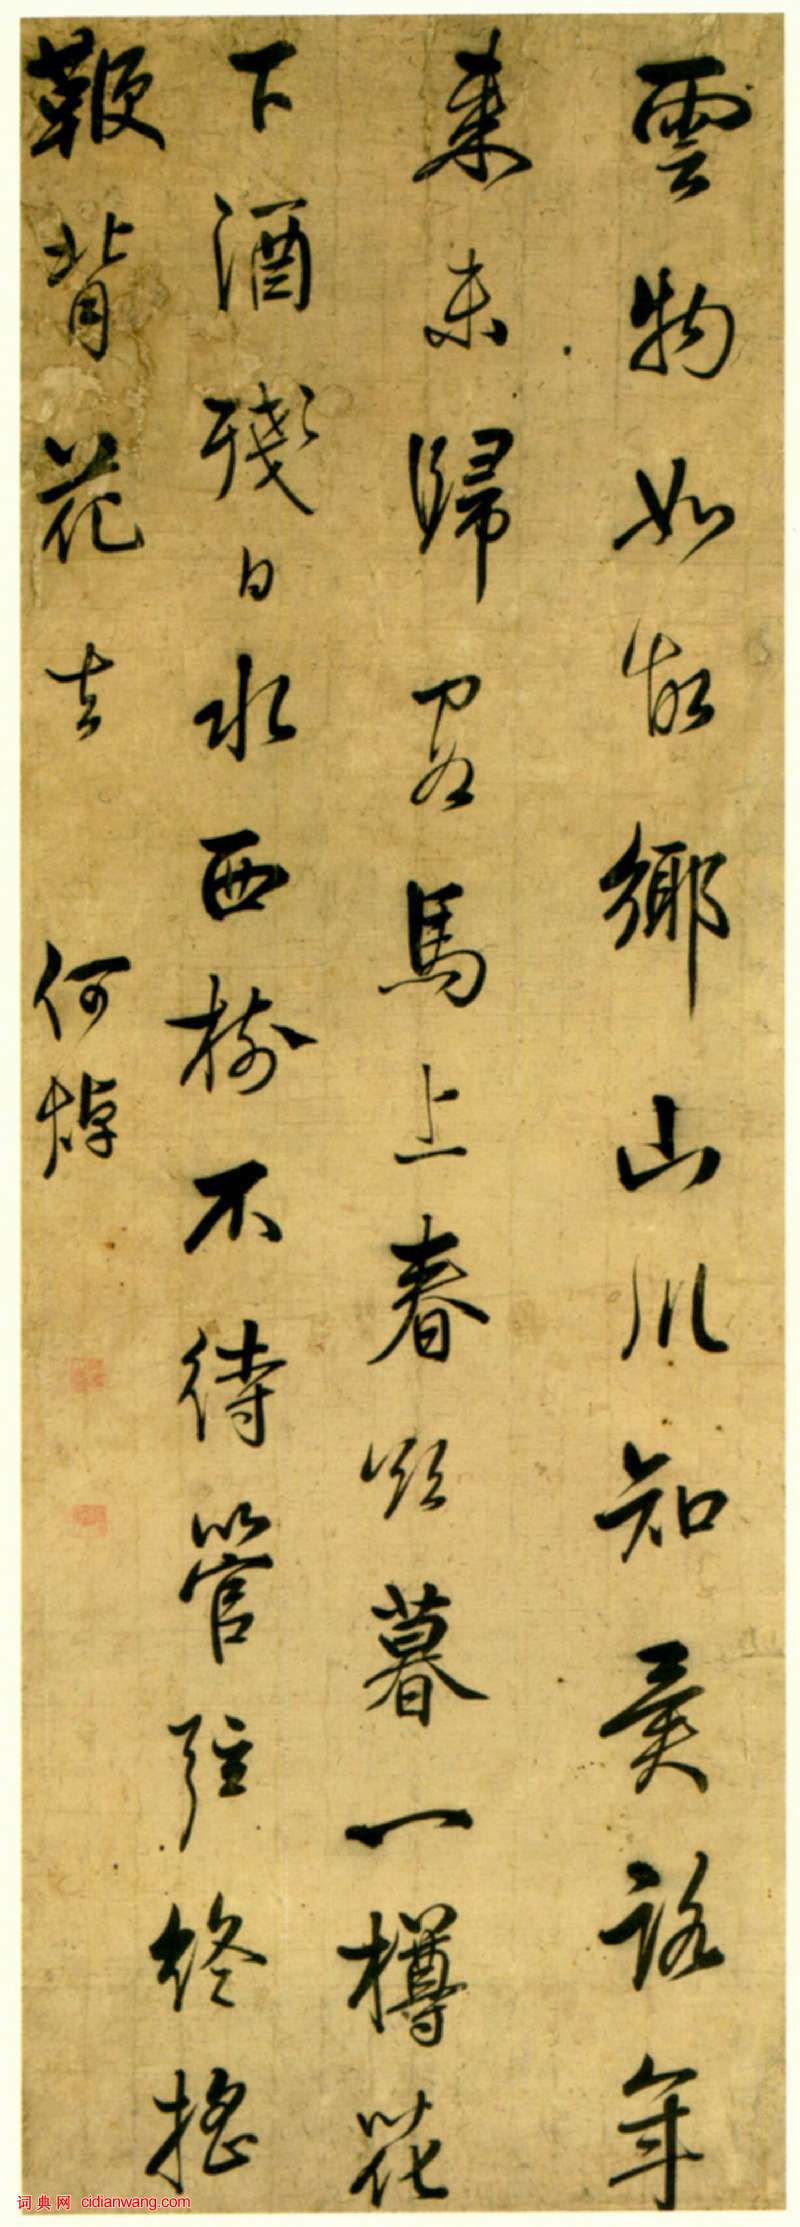 雲物如故鄉山川知異路年
來未歸客馬上春欲暮一樽花
下酒殘日水西樹不待管弦終搖
鞭背花去 何焯
词典网 cidianwang.com